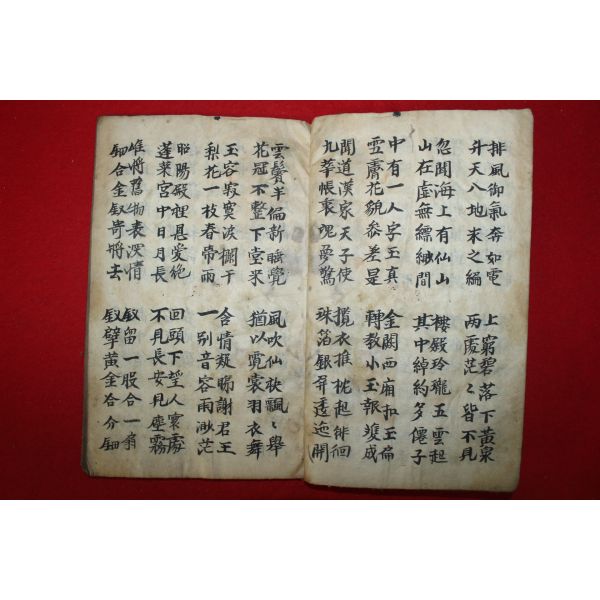 排風御氣奔如電
升天入地求之編
上窮碧落下黃泉
兩處茫〻皆不見
忽聞海上有仙山
山在虛無縹緲間
樓殿玲瓏五雲起
其中綽約多僊子
中有一人字玉真
雪膚花貌參差是
金闕西廂扣玉扃
轉教小玉報雙成
聞道漢家天子使
九華帳裏魂夢驚
攬衣推枕起徘徊
珠箔銀屏透迤開
雲鬢半偏新睡覺
花冠不整下堂來
風吹仙袂飄〻舉
猶以霓裳羽衣舞
玉容寂寞波欄干
梨花一枝春帶雨
含情凝睇謝君王
一别音容兩渺茫
昭陽殿裡恩愛絶
蓬萊宮中日月長
回頭下望人寰處
不見長安見塵霧
唯將舊物表深情
鈿合金釵寄將去
釵留一股合一扇
釵擘黃金合分鈿